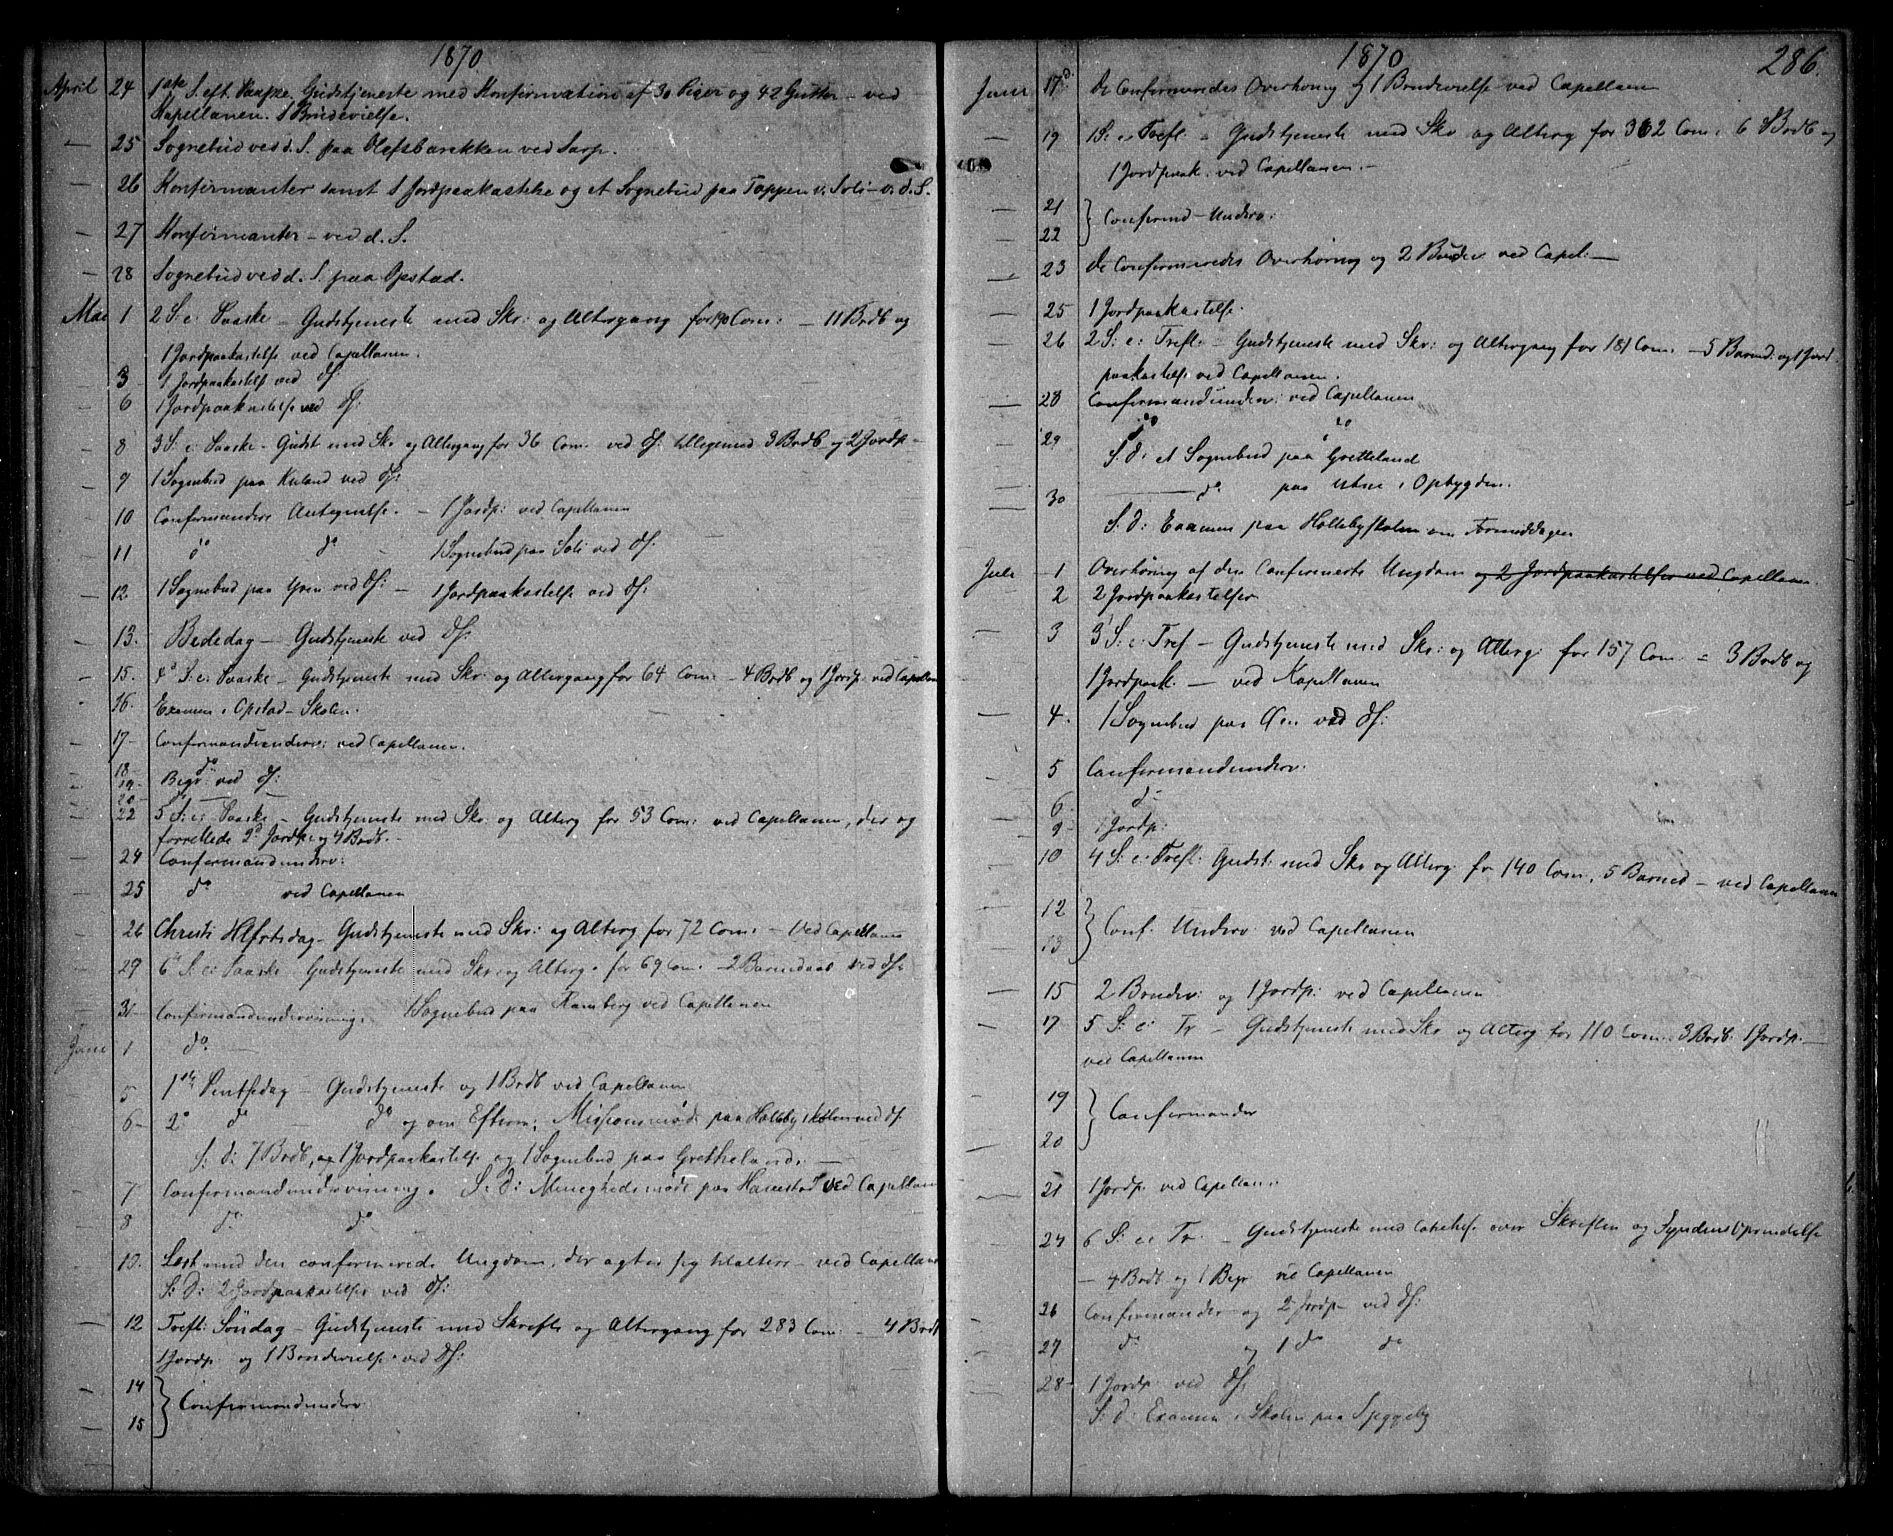 1870
April 24 1ste S. eft. Paaske. Gudstjeneste med Konfirmation af 30 Piger og 42 Gutter – ved
Kapellanen. 1 Brudevielse.
— 25 Sognebud ved d. S. paa Olefsbarakken ved Sarp.
— 26 Konfirmanter samt 1 Jordpaakastelse og et Sognebud paa Tappen v. Soli – v. d. S.
— 27 Konfirmanter – ved d. S.
— 28 Sognebud ved d. S. paa Opstad.
Mai 1 2 S: e: Paaske – Gudstjeneste med Skr: og Altergang for 190 Com: — 11 Brdb og
1 Jordpaakastelse ved Capellanen.
3 1 Jordpaakastelse ved Ds:
6 1 Jordpaakastelse ved Ds:
8 3 S: e: Paaske – Gudst med Skr og Altergang for 36 Com: ved Ds: tilligemed 3 Brdb og 2 Jordp –
9 1 Sognebud paa Kuland ved Ds:
10 Confirmanders Antegnelse. – 1 Jordp: ved Capellanen
11 do do – 1 Sognebud paa Soli ved Ds:
12 1 Sognebud paa Yven ved Ds: — 1 Jordpaakastelse ved Ds:
13. Bededag — Gudstjeneste ved Ds:
15. 4 S: e: Paaske – Gudstjeneste med Skr: og Altergang for 64 Com: – 4 Brdb og 1 Jordp. ved Capellan
16. Examen i Opstad-Skolen.
17– Confirmandunderv: ved Capellanen.
18 do
19– Begr: ved Ds:
20 –
22 5 S: e: Paaske – Gudstjeneste med Skr: og Alterg for 53 Com: ved Capellanen, der og
forrettede 2 Jordp: og 4 Brdb. –
24 Confirmandunderv:
25 do ved Capellanen
26 Christi Hlfrtsdag – Gudstjeneste med Skr: og Alterg for 72 Com: – Ved Capellanen
29 6 S: e: Paaske – Gudstjeneste med Skr og Alterg. for 69 Com: – 2 Barnedaab ved Ds:
31– Confirmandundervisning. 1 Sognebud paa Ramberg ved Capellanen
Juni 1 do —
5 1ste Pintsedag – Gudstjeneste og 1 Brdb ved Capellanen
6– 2 do do og om Efterm: Missionsmøde paa Hollebyskolen ved Ds
S: D: 7 Brdb, og 1 Jordpaakastelse og 1 Sognebud paa Grethelands —
7 Confirmandundervisning. S: D: Menighedsmøde paa Hannestad Ved Capellan
8 do do
10. Læst med den confirmerede Ungdom, der agter sig til Alters – ved Capellan
S: D: 2 Jordpaakastelser ved Ds:
12 Trefl: Söndag – Gudstjeneste med Skrifte og Altergang for 283 Com: – 4 Brdb
1 Jordp. og 1 Brudevielse ved Ds:
14
15 } Confirmandunderv:
1870 286.
Juni 17 De Confirmeredes Overhøring og 1 Brudevielse ved Capellanen
19 1 S: e: Trefl. – Gudstjeneste med Skr og Alterg for 362 Com: 6 Brdb og
1 Jordpaak. ved Capellanen. –
21
22 } Confirmd-Underv:
23 De Confirmeredes Overhøring og 2 Brudev ved Capel: —
25 1 Jordpaakastelse.
26 2 S: e: Trefl: – Gudstjeneste med Skr: og Altergang for 181 Com: – 5 Barned: og 1 Jord-
paakastelse ved Capellanen.
28 Confirmandunderv: ved Capellanen
29 do do
S: d: et Sognebud paa Gretteland
30 — do paa Utne i Opbygden.
S: d: Examen paa Hollebyskolen om Formiddagen
Juli 1 Overhøring af den Confirmerte Ungdom og 2 Jordpaakastelser ved Capellanen.
2 2 Jordpaakastelser
3 3 S: e: Tref – Gudstjeneste med Skr: og Alterg: for 157 Com: = 3 Brdb og
1 Jordpaak. – ved Kapellanen
4. 1 Sognebud paa Øen ved Ds:
5 Confirmandunderv:
6 do
9– 1 Jordp:
10 4 S: e: Trefl: Gudst: med Skr og Alterg: for 140 Com, 5 Barned – ved Capellanen
12
13 } Conf: Underv: ved Capellanen
15 2 Brudev: og 1 Jordp: ved Capellanen
17 5 S: e: Tr – Gudstjeneste med Skr og Alterg for 110 Com: 3 Brdb 1 Jordp. —
ved Capellanen
19
20 } Confirmander
21 1 Jordp. ved Capellan:
24 6 S: e: Tr. – Gudstjeneste med Catechese over Skriften og Syndens Oprindelse
– 4 Brdb og 1 Begr ved Capellanen
26 Confirmander – og 2 Jordp – ved Ds:
27 do og 1 do do
28– 1 Jordp. ved Ds:
S: d: Examen i Skolen paa Speggeby